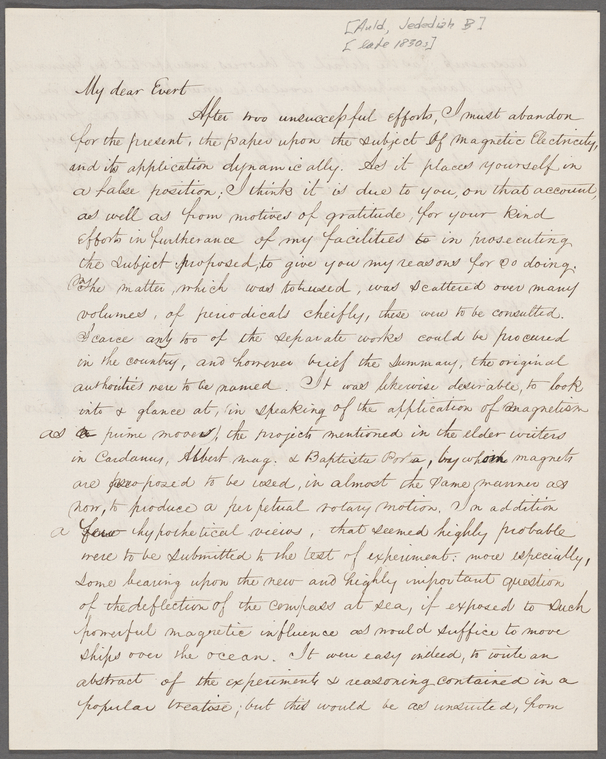 [Auld, Jedediah B]
[late 1830s]
My dear Evert
After two unsuccessful efforts, I must abandon
for the present, the paper upon the subject of magnetic Electricity,
and its application dynamically. As it places yourself in
a false position; I think it is due to you, on that account,
as well as from motives of gratitude, for your kind
efforts in furtherance of my facilities to in prosecuting
the subject proposed, to give you my reasons for so doing.
The matter, which was to be used, was scattered over many
volumes, of periodicals cheifly, these were to be consulted.
Scarce any too of the separate works could be procured
in the country, and however brief the summary, the original
authorities were to be named. It was likewise desirable, to look
into & glance at, in speaking of the application of magnetism
as a prime mover, the projects mentioned in the elder writers
in Cardanus, Albert mag. & Baptista Porta, by whom magnets
are proposed to be used, in almost the same manner as
now, to produce a perpetual rotary motion. In addition
a few hypothetical views, that seemed highly probable
were to be submitted to the test of experiment: more especially,
some bearing upon the new and highly important question
of the deflection of the compass at sea, if exposed to such
powerful magnetic influence as would suffice to move
ships over the ocean. It were easy indeed, to write an
abstract of the experiments & reasoning contained in a
popular treatise; but this would be as unsuited, from